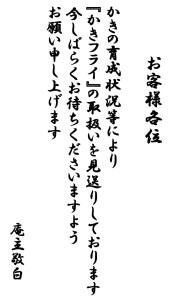 お客様各位
かきの育成状況等により
『かきフライ』の取扱いを見送りしております
今しばらくお待ちくださいますよう
お願い申し上げます
庵主敬白